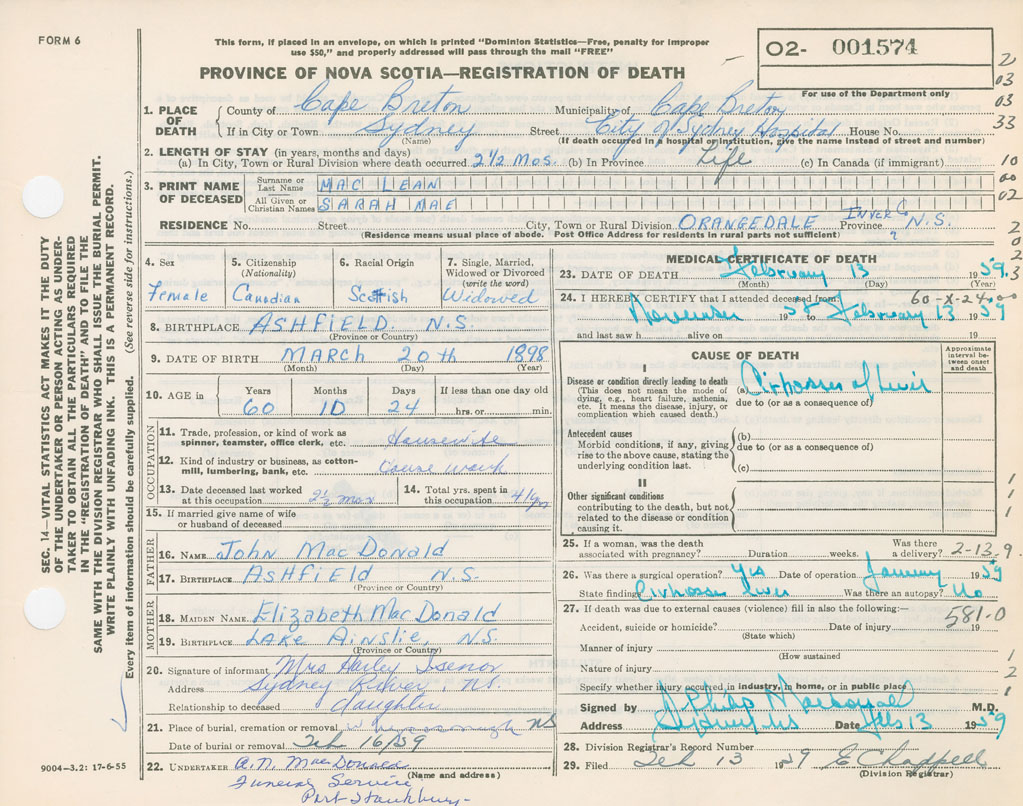 FORM 6
This form, if placed in an envelope, on which is printed "Dominion Statistics—Free, penalty for improper
use $50," and properly addressed will pass through the mail "FREE"
O2- 001574
For use of the Department only
PROVINCE OF NOVA SCOTIA—REGISTRATION OF DEATH
1. PLACE OF DEATH
County of Cape Breton Municipality of Cape Breton
If in City or Town Sydney Street City of Sydney Hospital House No.
(Name) (If death occurred in a hospital or institution, give the name instead of street and number)
2. LENGTH OF STAY (in years, months and days)
(a) In City, Town or Rural Division where death occurred 2½ Mos. (b) In Province Life (c) In Canada (if immigrant)
3. PRINT NAME OF DECEASED
Surname or Last Name MAC LEAN
All Given or Christian Names SARAH MAE
RESIDENCE No. Street City, Town or Rural Division ORANGEDALE Inver Co Province N.S.
(Residence means usual place of abode. Post Office Address for residents in rural parts not sufficient) ?
2
03
03
33
10
00
02
2
0
2
3
SEC. 14—VITAL STATISTICS ACT MAKES IT THE DUTY
OF THE UNDERTAKER OR PERSON ACTING AS UNDER-
TAKER TO OBTAIN ALL THE PARTICULARS REQUIRED
IN THE "REGISTRATION OF DEATH" AND TO FILE THE
SAME WITH THE DIVISION REGISTRAR WHO SHALL ISSUE THE BURIAL PERMIT.
WRITE PLAINLY WITH UNFADING INK. THIS IS A PERMANENT RECORD.
Every item of information should be carefully supplied. (See reverse side for instructions.)
4. Sex
Female
5. Citizenship
(Nationality)
Canadian
6. Racial Origin
Scottish
7. Single, Married,
Widowed or Divorced
(write the word)
Widowed
8. BIRTHPLACE ASHFIELD N.S.
(Province or Country)
9. DATE OF BIRTH MARCH 20th 1898
(Month) (Day) (Year)
10. AGE in
Years Months Days If less than one day old
60 10 24 hrs. or min.
OCCUPATION
11. Trade, profession, or kind of work as
spinner, teamster, office clerk, etc. Housewife
12. Kind of industry or business, as cotton-
mill, lumbering, bank, etc. House work
13. Date deceased last worked
at this occupation 2½ mos
14. Total yrs. spent in
this occupation 41 yrs
15. If married give name of wife
or husband of deceased
FATHER
16. NAME John MacDonald
17. BIRTHPLACE ASHFIELD N.S.
(Province or Country)
MOTHER
18. MAIDEN NAME Elizabeth MacDonald
19. BIRTHPLACE LAKE AINSLIE, N.S.
(Province or Country)
20. Signature of informant Mrs Harley Isenor
Address Sydney River, NS.
Relationship to deceased daughter
21. Place of burial, cremation or removal NS
Date of burial or removal Feb 16/59
22. UNDERTAKER A.N. MacDonald
(Name and address)
Funeral Service
Port Hawkesbury
9004-3.2: 17-6-55
MEDICAL CERTIFICATE OF DEATH
23. DATE OF DEATH February 13 1959.
(Month) (Day)
24. I HEREBY CERTIFY that I attended deceased from: 60-X-24
November 1958 to February 13 1959
and last saw h alive on 19
CAUSE OF DEATH
Approximate interval between onset and death
I
Disease or condition directly leading to death
(This does not mean the mode of
dying, e.g., heart failure, asthenia,
etc. It means the disease, injury, or
complication which caused death.)
(a) Cirrhosis of Liver
due to (or as a consequence of)
Antecedent causes
Morbid conditions, if any, giving
rise to the above cause, stating the
underlying condition last.
(b)
due to (or as a consequence of)
(c)
II
Other significant conditions
contributing to the death, but not
related to the disease or condition
causing it.
1
1
1
25. If a woman, was the death
associated with pregnancy? Duration weeks.
Was there
a delivery? 2-13-9
26. Was there a surgical operation? Yes Date of operation January 1959
State findings Cirrhosis Liver Was there an autopsy? No
27. If death was due to external causes (violence) fill in also the following:—
581.0
Accident, suicide or homicide? Date of injury 19
(State which)
Manner of injury
(How sustained
Nature of injury
Specify whether injury occurred in industry, in home, or in public place
1
2
1
Signed by M.D.
Address Sydney NS Date Feb 13 1959
28. Division Registrar's Record Number
29. Filed Feb 13 1959 E Chappell
(Division Registrar)